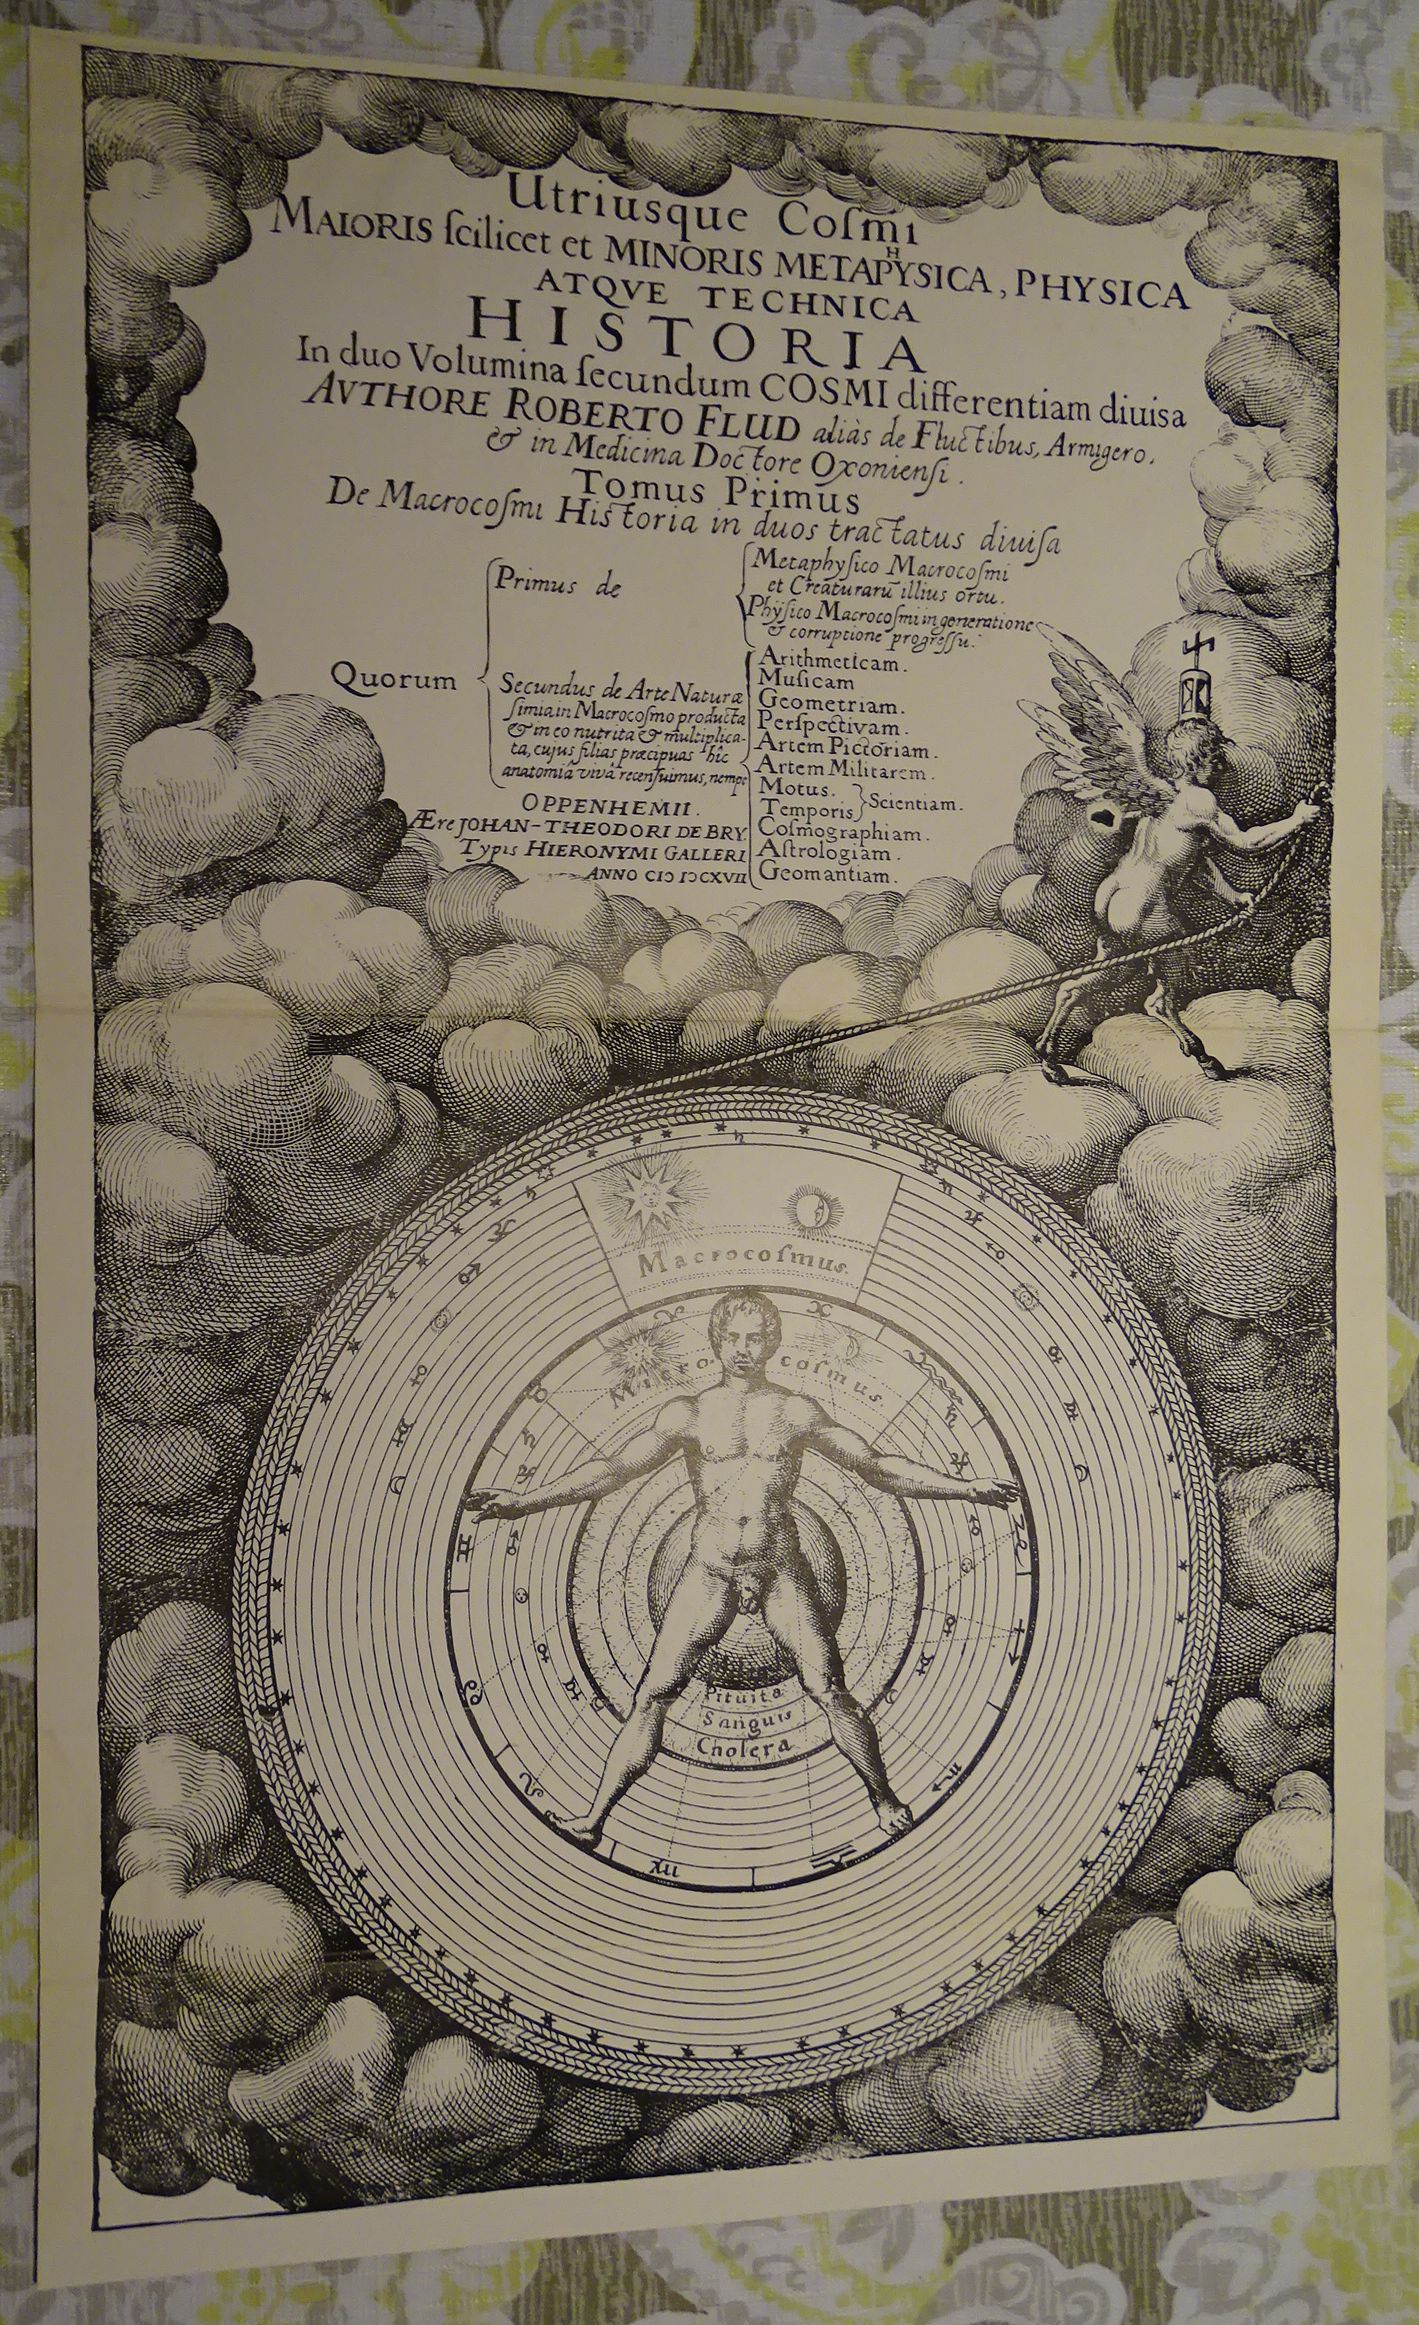 Utriusque Coſmi
MAIORIS ſcilicet et MINORIS METAPHYSICA, PHYSICA
ATQVE TECHNICA
HISTORIA
In duo Volumina ſecundum COSMI differentiam diuiſa
AVTHORE ROBERTO FLUD aliàs de Fluctibus, Armigero,
& in Medicina Doctore Oxonienſi.
Tomus Primus
De Macrocoſmi Hiſtoria in duos tractatus diuiſa
Quorum
Primus de
Metaphyſico Macrocoſmi
et Creaturarū illius ortu.
Phyſico Macrocoſmi in generatione
& corruptione progreſſu.
Secundus de Arte Naturæ
ſimia in Macrocoſmo producta
& in eo nutrita & multiplica-
ta, cujus filias præcipuas hîc
anatomiâ vivâ recenſuimus, nempe
Arithmeticam.
Muſicam
Geometriam.
Perſpectivam.
Artem Pictoriam.
Artem Militarem.
Motus.
Temporis
Scientiam.
Coſmographiam.
Aſtrologiam.
Geomantiam.
OPPENHEMII.
Ære JOHAN-THEODORI DE BRY.
Typis HIERONYMI GALLERI
ANNO CIↃ IↃCXVII
Macrocoſmus.
Microcoſmus
Pituita
Sanguis
Cholera